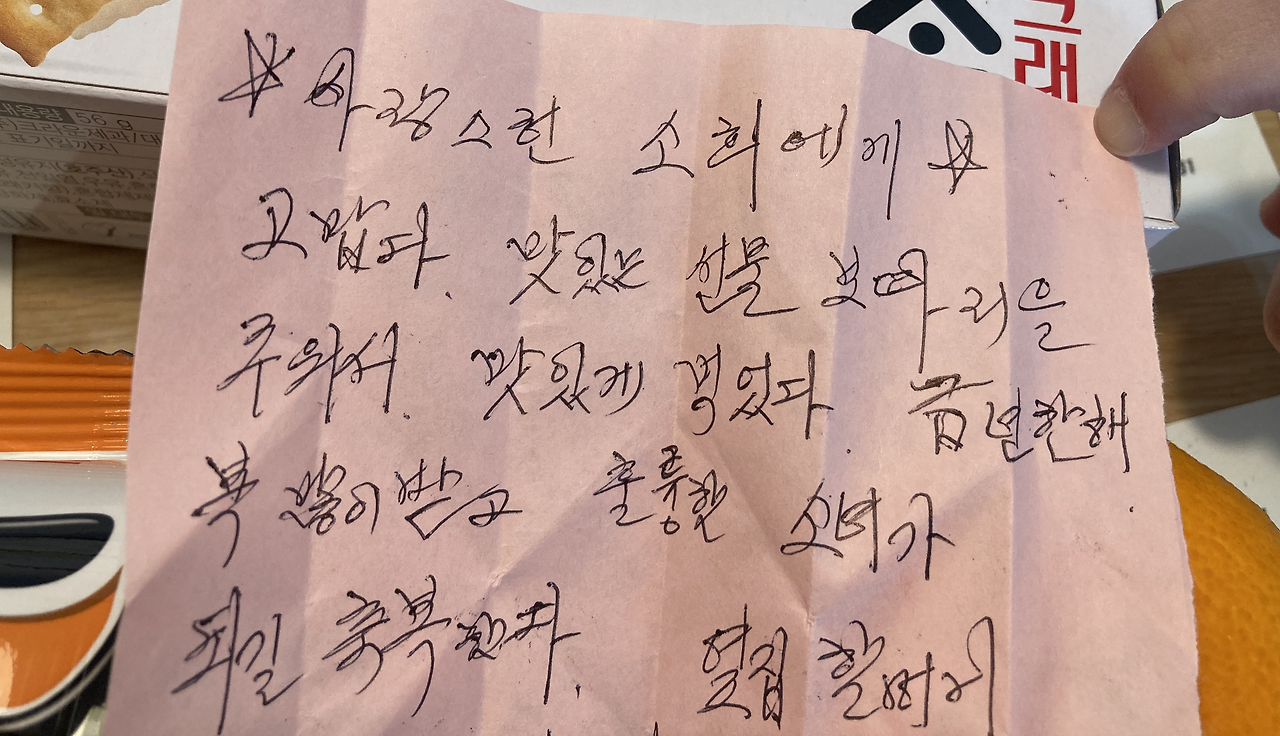 ☆ 사랑스런 소희에게 ☆
고맙다. 맛있는 선물 보따리을
주워서. 맛있게 먹었다. 금년한해
복 많이 받고 훌륭한 소녀가
되길 축복한다. 옆집 할머니
내용량 56 g
크래